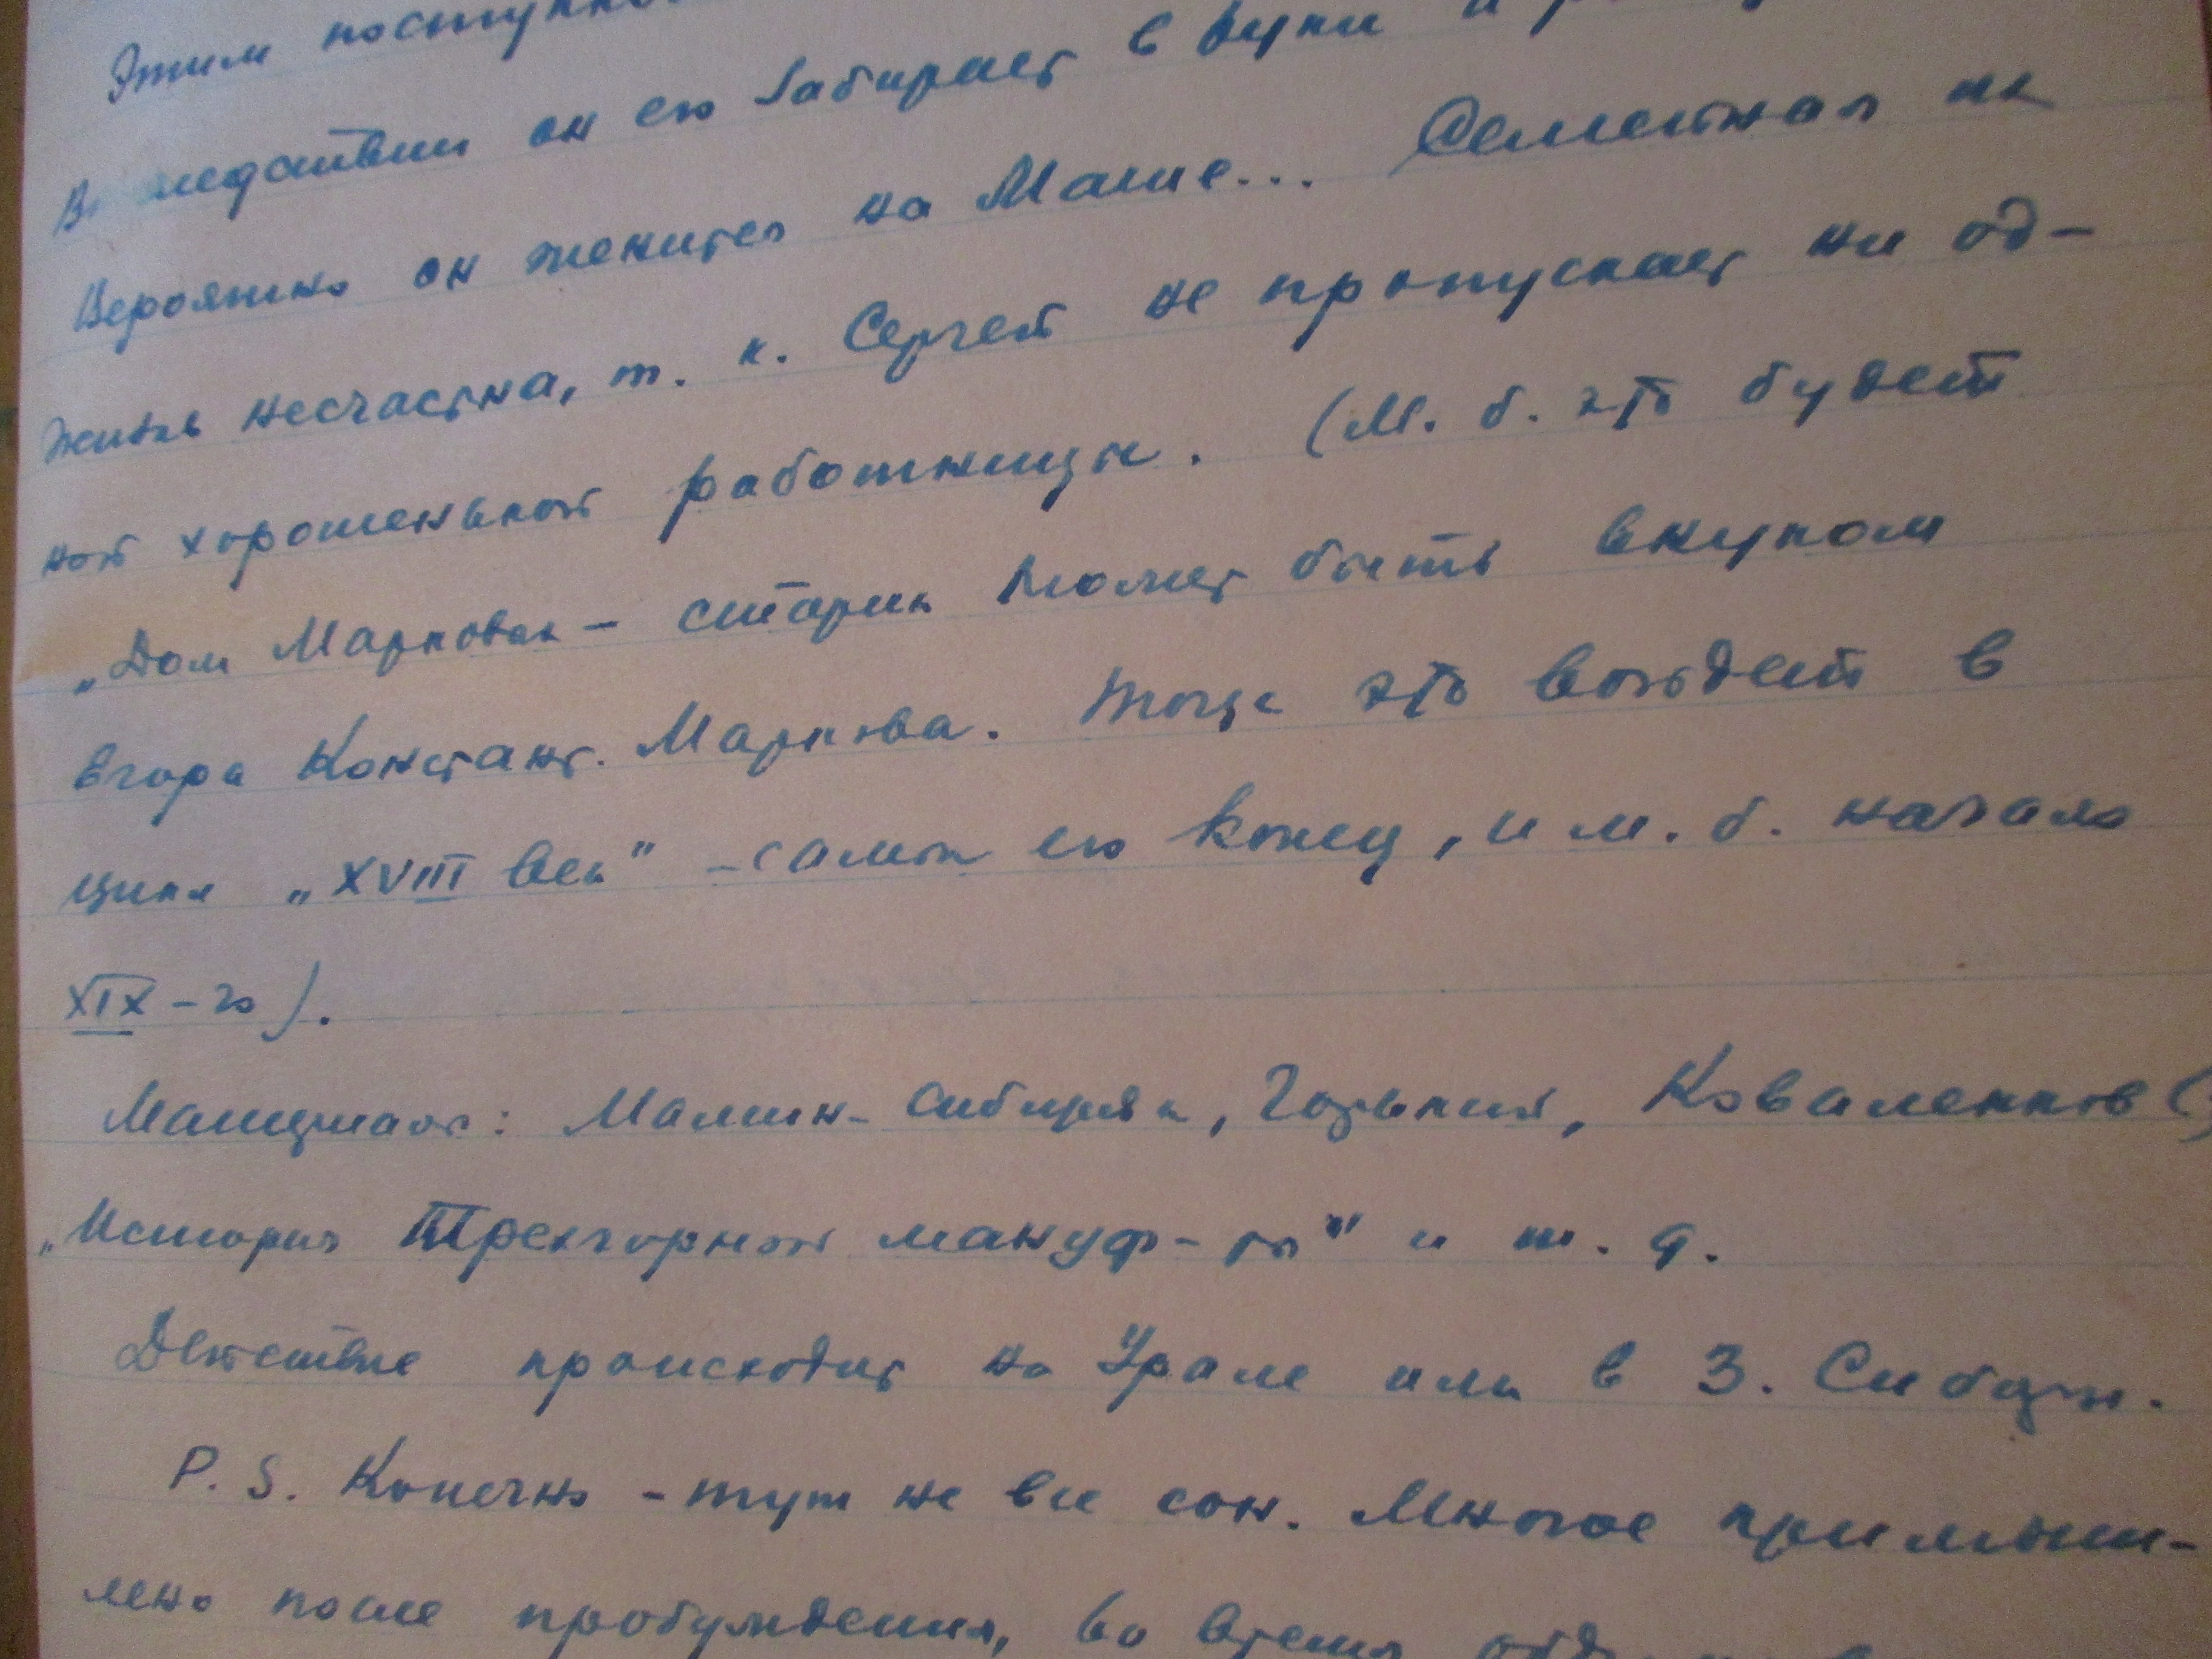 Этим
Впоследствии он его забирает в руки и
Вероятно он женится на Маше... Семейная их
жизнь несчастна, т. к. Сергей не пропускает ни од-
ной хорошенькой работницы. (М. б. это будет
„Дом Марковых — старик может быть внуком
Егора Констант. Маркова. Тогда это войдет в
цикл „XVIII век" – самый его конец, и м. б. начало
XIX – го).
Мамин-Сибиряк, Горький, Коваленков (
„История Трехгорной мануф-ры" и т. д.
Действие происходит на Урале или в З. Сибири.
P. S. Конечно – тут не все сон. Многое примыш-
лено после пробуждения, во время